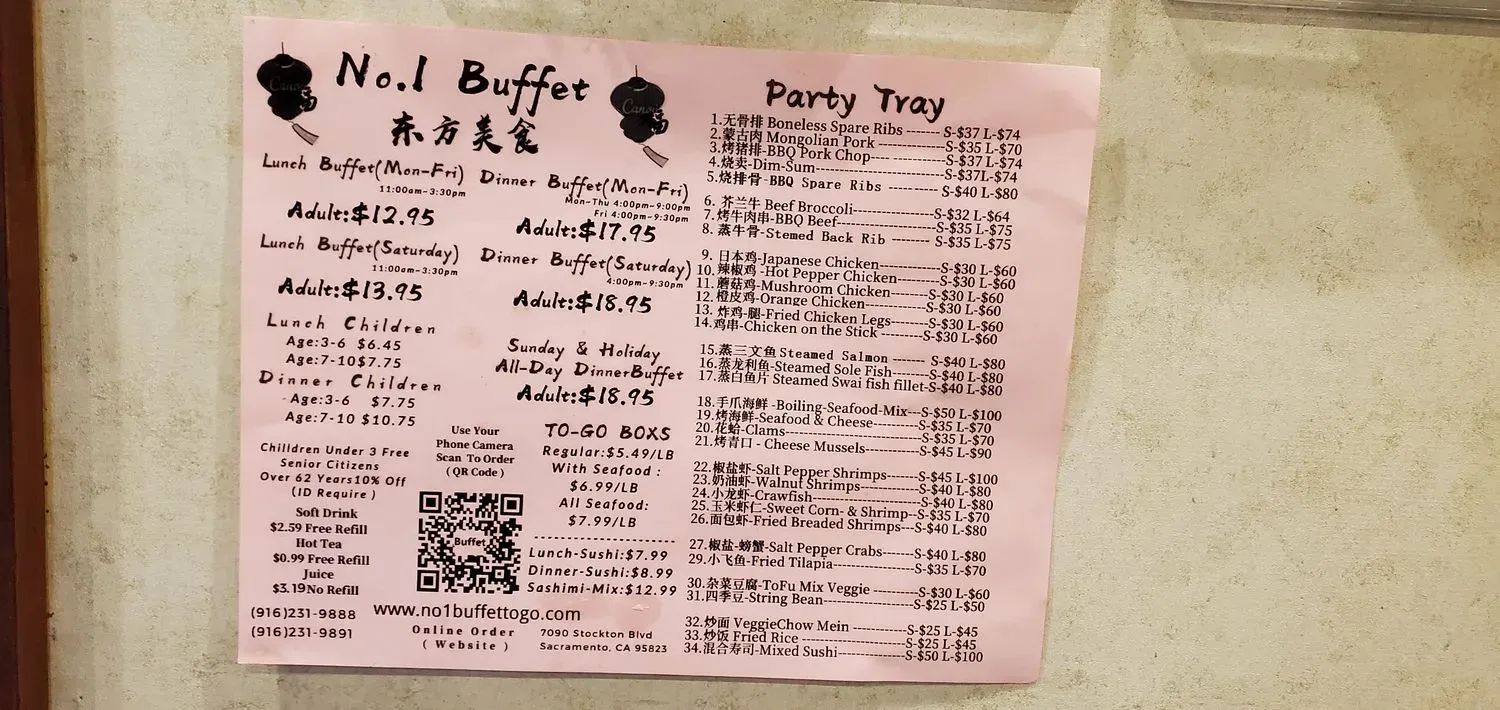 No.1 Buffet
东方美食
福
福
Lunch Buffet(Mon-Fri)
11:00am-3:30pm
Adult:$12.95
Lunch Buffet(Saturday)
11:00am-3:30pm
Adult:$13.95
Lunch Children
Age:3-6 $6.45
Age:7-10$7.75
Dinner Children
Age:3-6 $7.75
Age:7-10 $10.75
Chilldren Under 3 Free
Senior Citizens
Over 62 Years10% Off
(ID Require )
Soft Drink
$2.59 Free Refill
Hot Tea
$0.99 Free Refill
Juice
$3.19No Refill
(916)231-9888
(916)231-9891
Dinner Buffet(Mon-Fri)
Mon-Thu 4:00pm-9:00pm
Fri 4:00pm-9:30pm
Adult:$17.95
Dinner Buffet(Saturday)
4:00pm-9:30pm
Adult:$18.95
Sunday & Holiday
All-Day DinnerBuffet
Adult:$18.95
Use Your
Phone Camera
Scan To Order
( QR Code )
Buffet
TO-GO BOXS
Regular:$5.49/LB
With Seafood :
$6.99/LB
All Seafood:
$7.99/LB
--------------------
Lunch-Sushi:$7.99
Dinner-Sushi:$8.99
Sashimi-Mix:$12.99
www.no1buffettogo.com
Online Order
( Website )
7090 Stockton Blvd
Sacramento, CA 95823
Party Tray
1.无骨排 Boneless Spare Ribs ------- S-$37 L-$74
2.蒙古肉 Mongolian Pork --------------S-$35 L-$70
3.烤猪排-BBQ Pork Chop---- ------------S-$37 L-$74
4.烧卖-Dim-Sum----------------------------S-$37L-$74
5.烧排骨-BBQ Spare Ribs ---------- S-$40 L-$80
6. 芥兰牛 Beef Broccoli-----------------S-$32 L-$64
7.烤牛肉串-BBQ Beef---------------------S-$35 L-$75
8. 蒸牛骨-Stemed Back Rib -------- S-$35 L-$75
9. 日本鸡-Japanese Chicken-------------S-$30 L-$60
10.辣椒鸡 -Hot Pepper Chicken---------S-$30 L-$60
11.蘑菇鸡-Mushroom Chicken--------S-$30 L-$60
12.橙皮鸡-Orange Chicken-------------S-$30 L-$60
13. 炸鸡-腿-Fried Chicken Legs--------S-$30 L-$60
14.鸡串-Chicken on the Stick ---------S-$30 L-$60
15.蒸三文鱼Steamed Salmon ------- S-$40 L-$80
16.蒸龙利鱼-Steamed Sole Fish--------S-$40 L-$80
17.蒸白鱼片 Steamed Swai fish fillet-S-$40 L-$80
18.手爪海鲜 -Boiling-Seafood-Mix---S-$50 L-$100
19.烤海鲜-Seafood & Cheese----------S-$35 L-$70
20.花蛤-Clams-----------------------------S-$35 L-$70
21.烤青口 - Cheese Mussels------------S-$45 L-$90
22.椒盐虾-Salt Pepper Shrimps-------S-$45 L-$100
23.奶油虾-Walnut Shrimps------------S-$40 L-$80
24.小龙虾-Crawfish-----------------------S-$40 L-$80
25.玉米虾仁-Sweet Corn- & Shrimp--S-$35 L-$70
26.面包虾-Fried Breaded Shrimps---S-$40 L-$80
27.椒盐-螃蟹-Salt Pepper Crabs-------S-$40 L-$80
29.小飞鱼-Fried Tilapia------------------S-$35 L-$70
30.杂菜豆腐-ToFu Mix Veggie --------S-$30 L-$60
31.四季豆-String Bean------------------S-$25 L-$50
32.炒面 VeggieChow Mein ------------S-$25 L-$45
33.炒饭 Fried Rice ---------------------S-$25 L-$45
34.混合寿司-Mixed Sushi--------------S-$50 L-$100